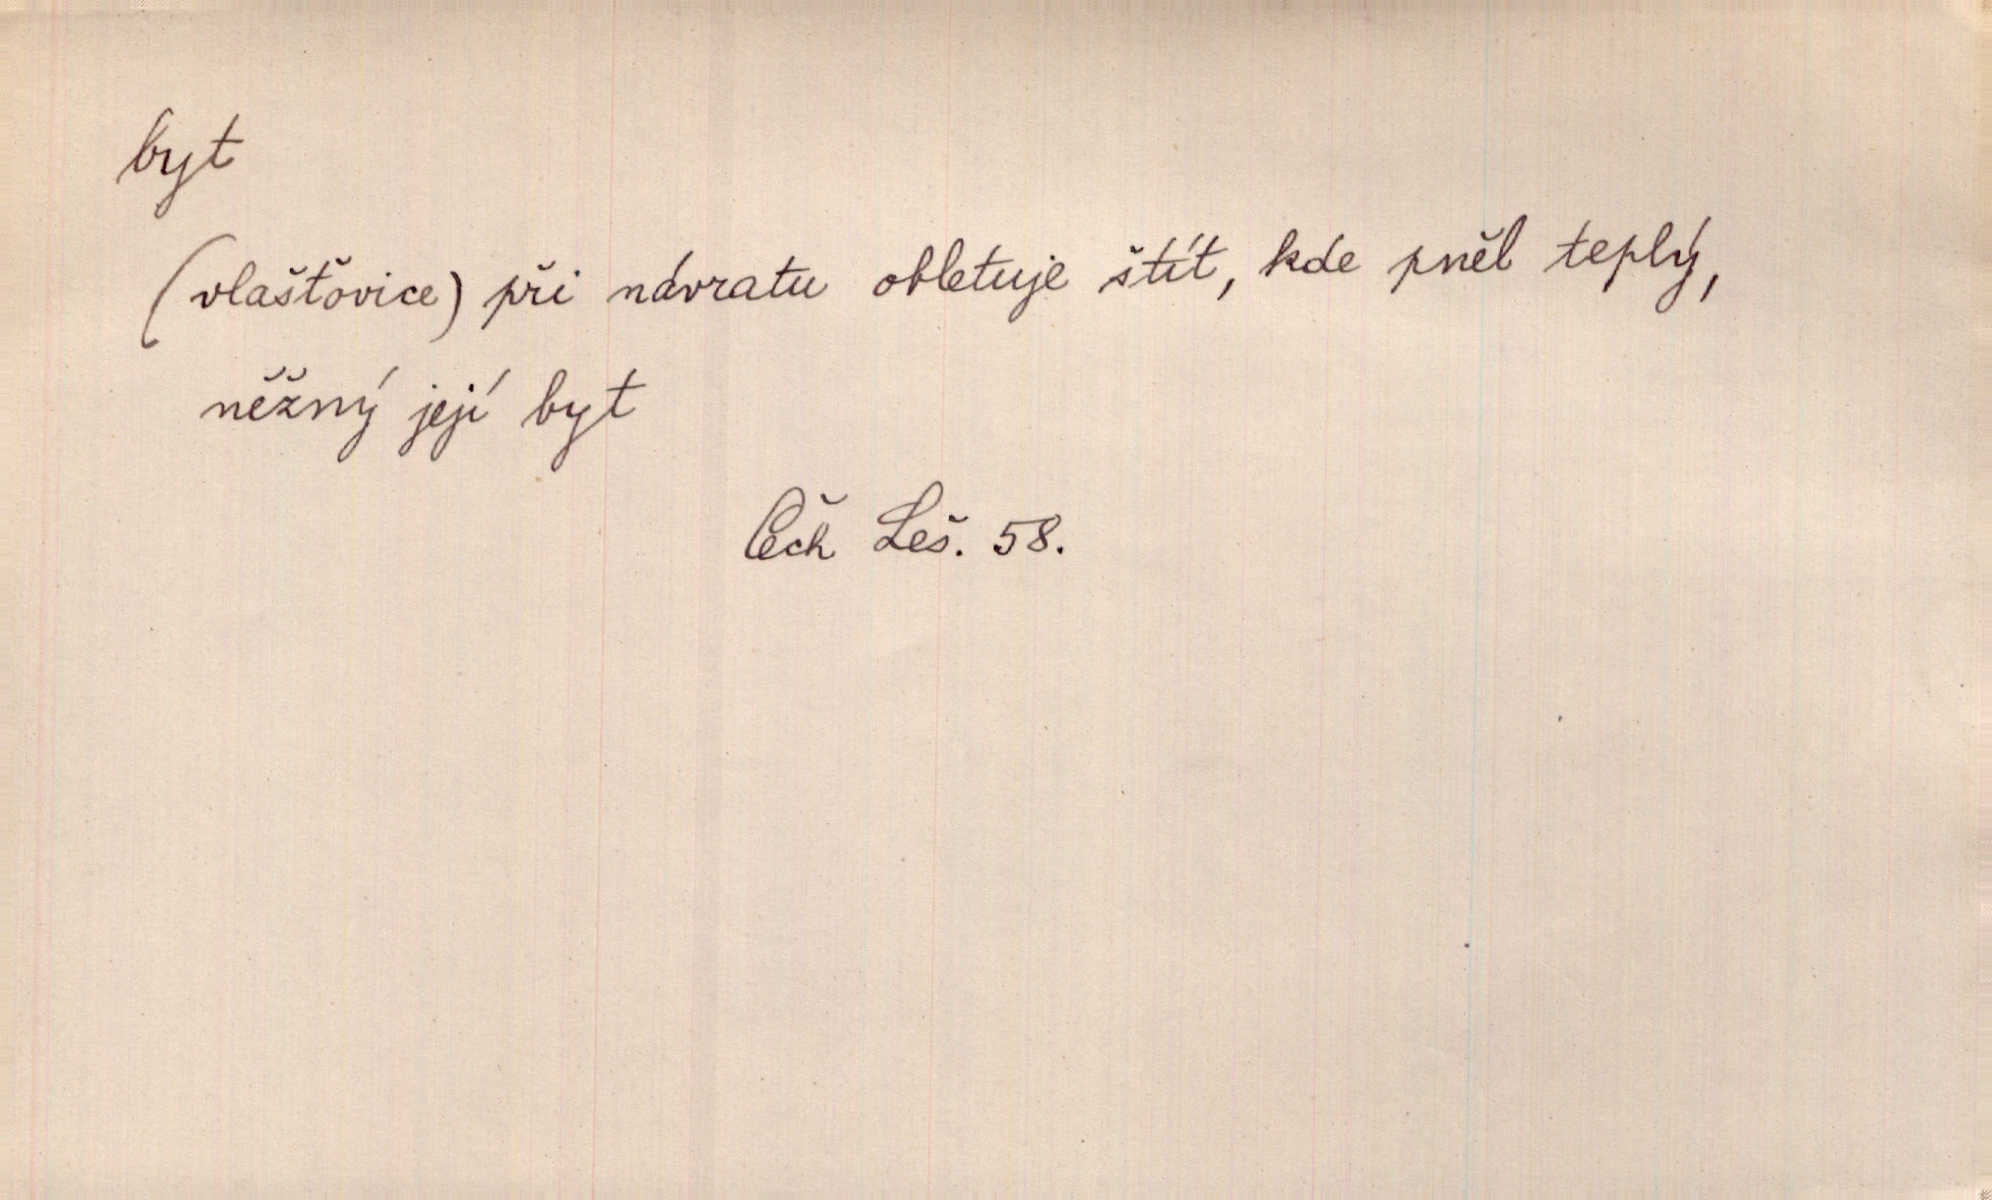 byt
(vlaštovice) při návratu obletuje štít, kde pněl teplý,
něžný její byt
Čech Leš. 58.